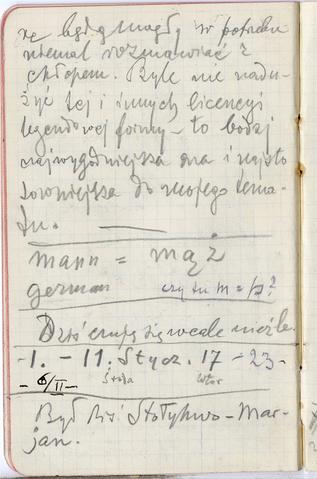 że będą mogły w potrzebie
niemal rozmawiać z
chłopem. Byle nie nadu-
żyć tej i innych licencyi
legendowej formy – to bodaj
najwygodniejsza ona i najsto
sowniejsza do mojego tema-
tu.
mann = mąż
german czy tu m = p?
Dziś czuję się wcale nieźle.
-1. - 11. Stycz. 17 - 23.-
- 6/II - Środa Wtor
Był dziś Stołyhwo - Mar-
jan.